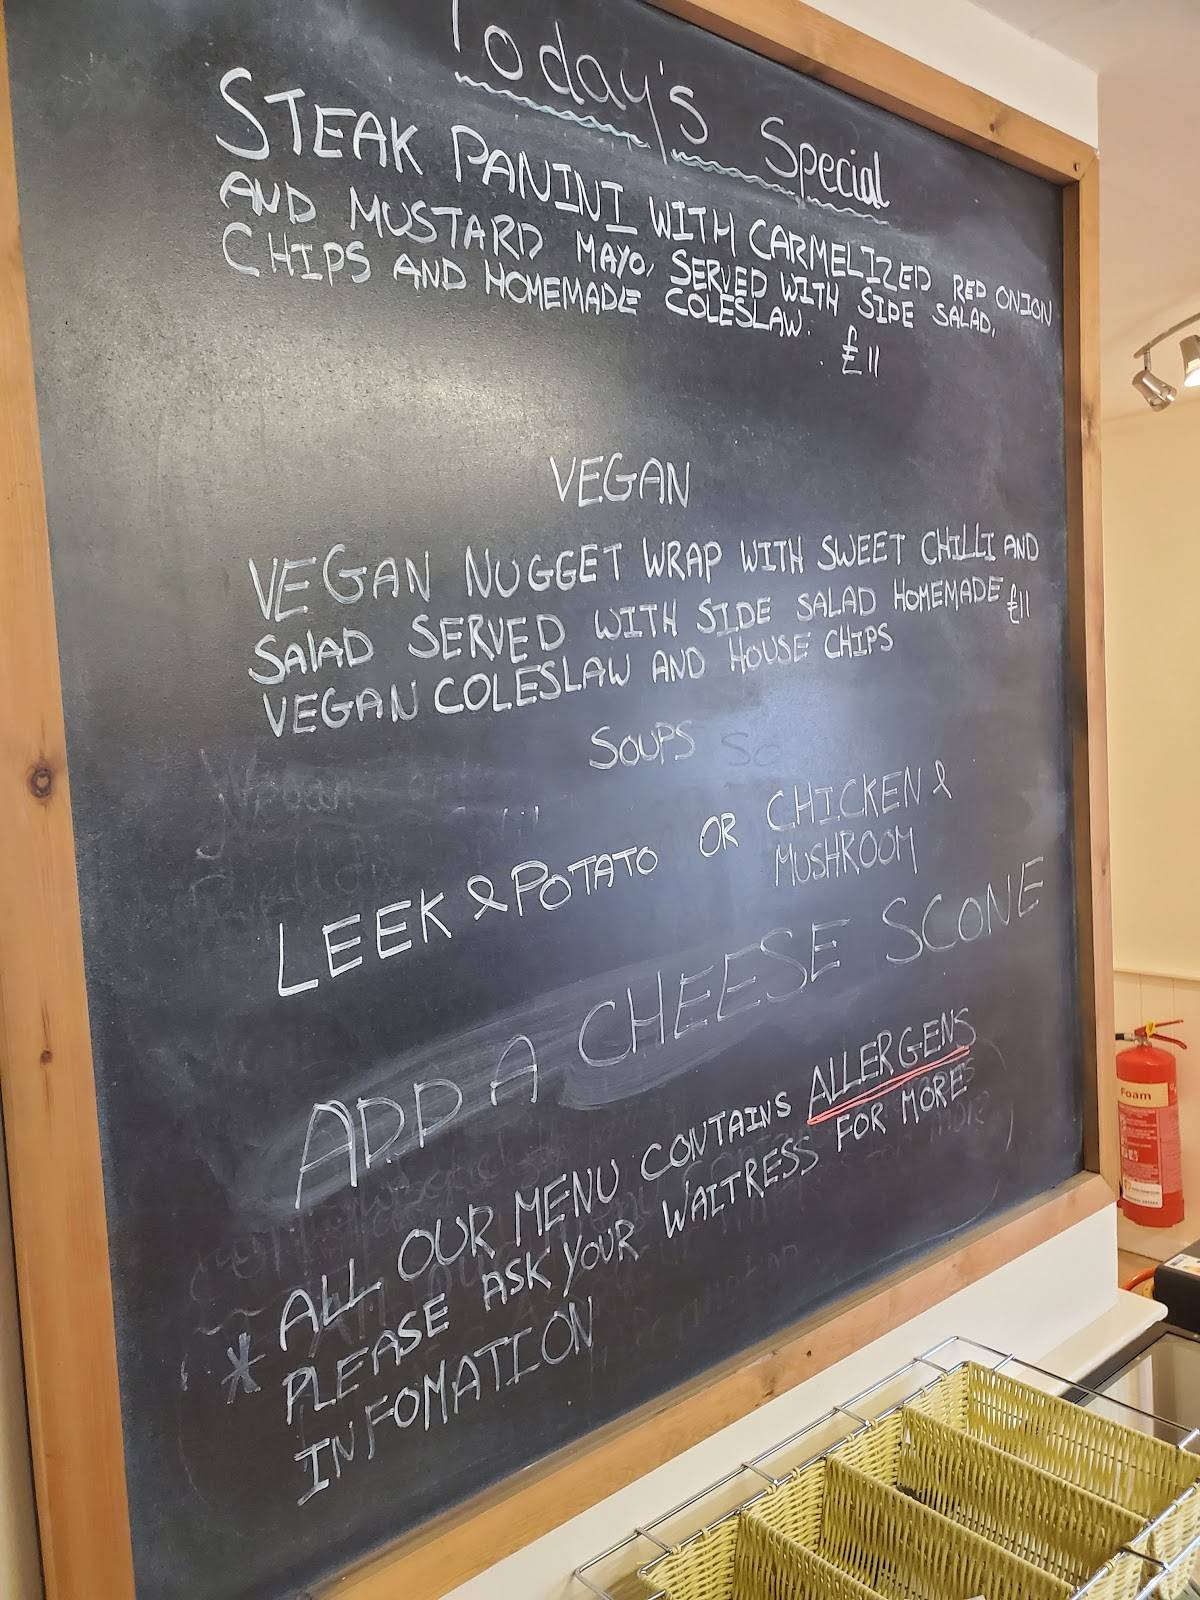 Today's Special
STEAK PANINI WITH CARMELIZED RED ONION
AND MUSTARD MAYO, SERVED WITH SIDE SALAD,
CHIPS AND HOMEMADE COLESLAW.
£11
VEGAN
VEGAN NUGGET WRAP WITH SWEET CHILLI AND
SALAD SERVED WITH SIDE SALAD HOMEMADE £11
VEGAN COLESLAW AND HOUSE CHIPS
SOUPS
LEEK & POTATO OR CHICKEN &
MUSHROOM
ADD A CHEESE SCONE
ALL OUR MENU CONTAINS ALLERGENS
* PLEASE ASK YOUR WAITRESS FOR MORE
INFOMATION
Foam